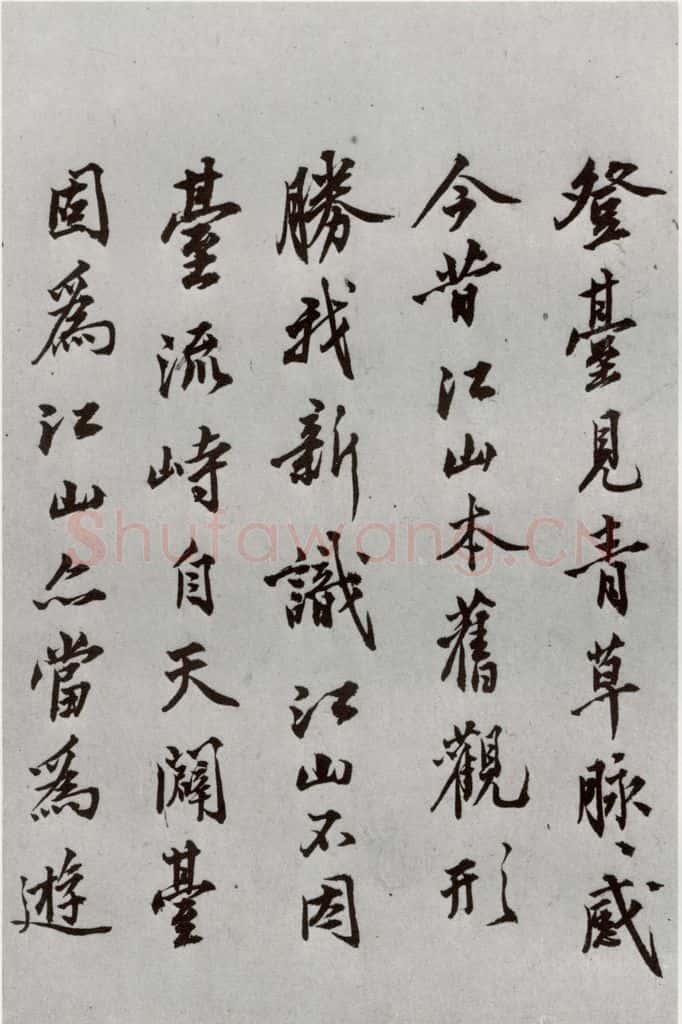 登臺見青草脉〻感
今昔江山本舊觀形
勝我新識江山不因
臺流峙自天闢臺
固為江山亦當為遊
Shufawang.CN